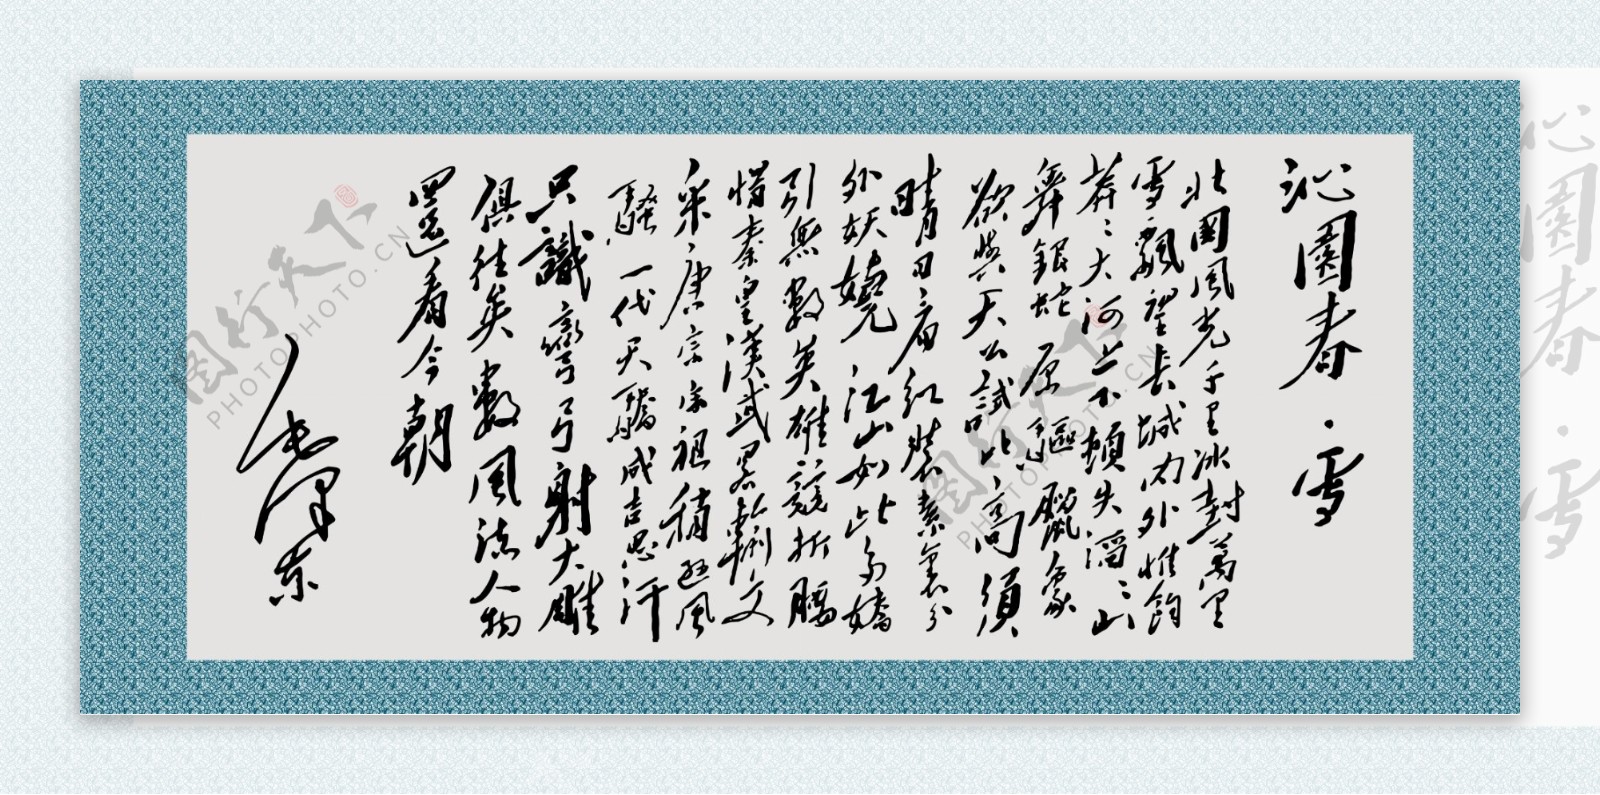 沁園春·雪
北國風光千里冰封萬里
雪飄望長城内外惟餘
莽莽大河上下頓失滔滔山
舞銀蛇原驅臘象
欲與天公試比高須
晴日看紅裝素裹分
外妖嬈江山如此多嬌
引無數英雄競折腰
惜秦皇漢武略輸文
采唐宗宋祖稍遜風
騷一代天驕成吉思汗
只識彎弓射大雕
俱往矣數風流人物
還看今朝
毛澤東
沁園春·雪
图行天下
PHOTOPHOTO.CN
图行天下
PHOTOPHOTO.CN